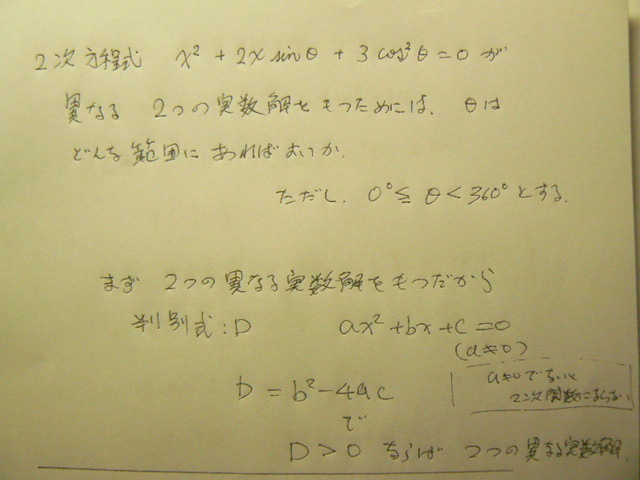 2次方程式 x² + 2x sinθ + 3cos²θ = 0 が
異なる 2つの実数解をもつためには、θは
どんな範囲にあればよいか.
ただし、0°≦ θ < 360°とする.
まず 2つの異なる実数解をもつだから
判別式:D ax²+bx+c=0
(a≠0)
a≠0でないと
2次関数にならない
D = b²-4ac
で
D > 0 ならば 2つの異なる実数解.